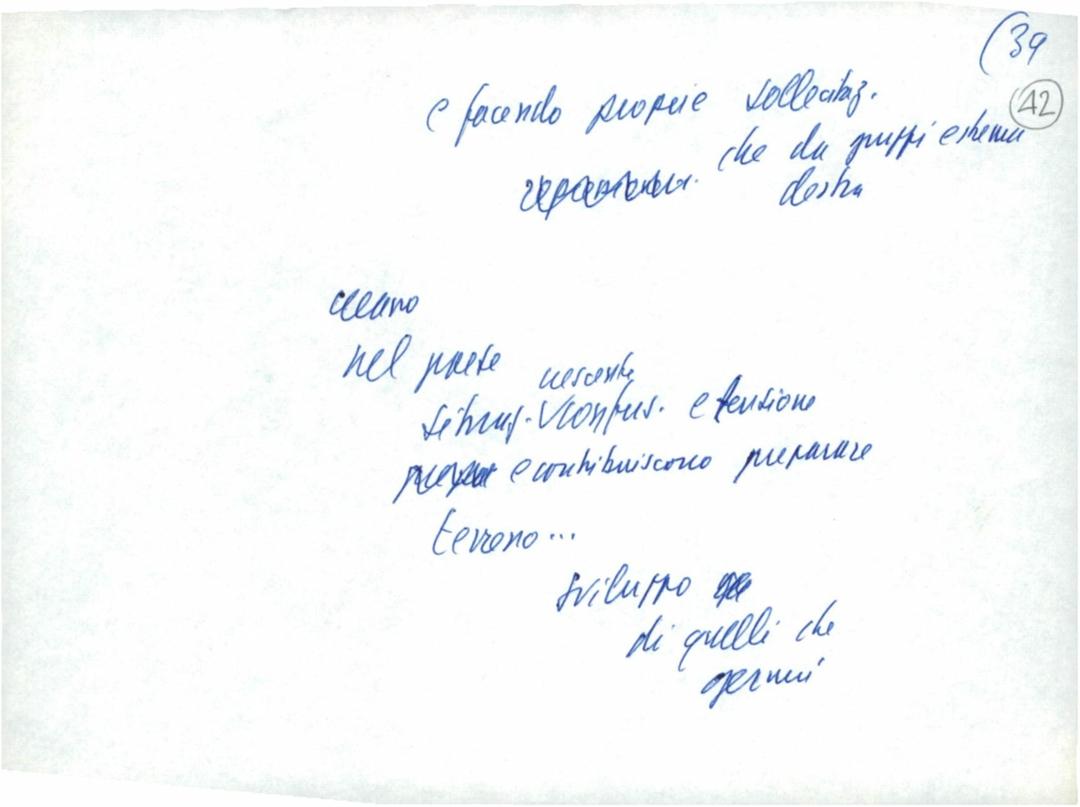 (39
42
e facendo proprie sollecitaz.
che da gruppi estrema
destra
creano
nel paese crescente
situaz. confus. e tensione
e contribuiscono preparare
terreno...
sviluppo
di quelli che
germi